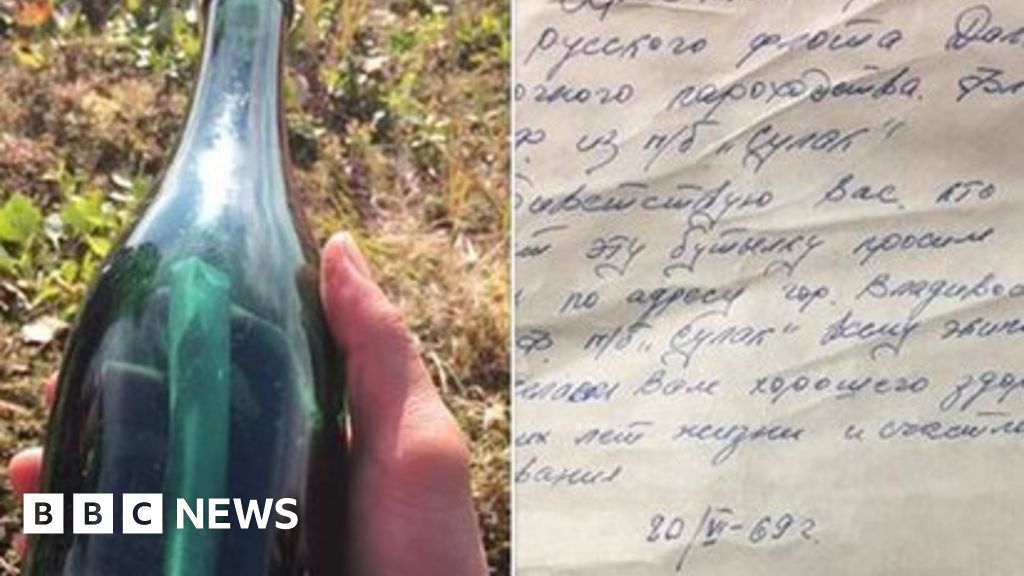 русского флота Дал
очного пароходства. Вл
Ф. из п/б „Сулак"
риветствую Вас, кто
ет эту бутылку просим
по адресу гор. Владивос
Ф. п/б „Сулак" всему экип
елаем Вам хорошего здор
их лет жизни и счастли
вания
20/VI-69 г.
BBC NEWS